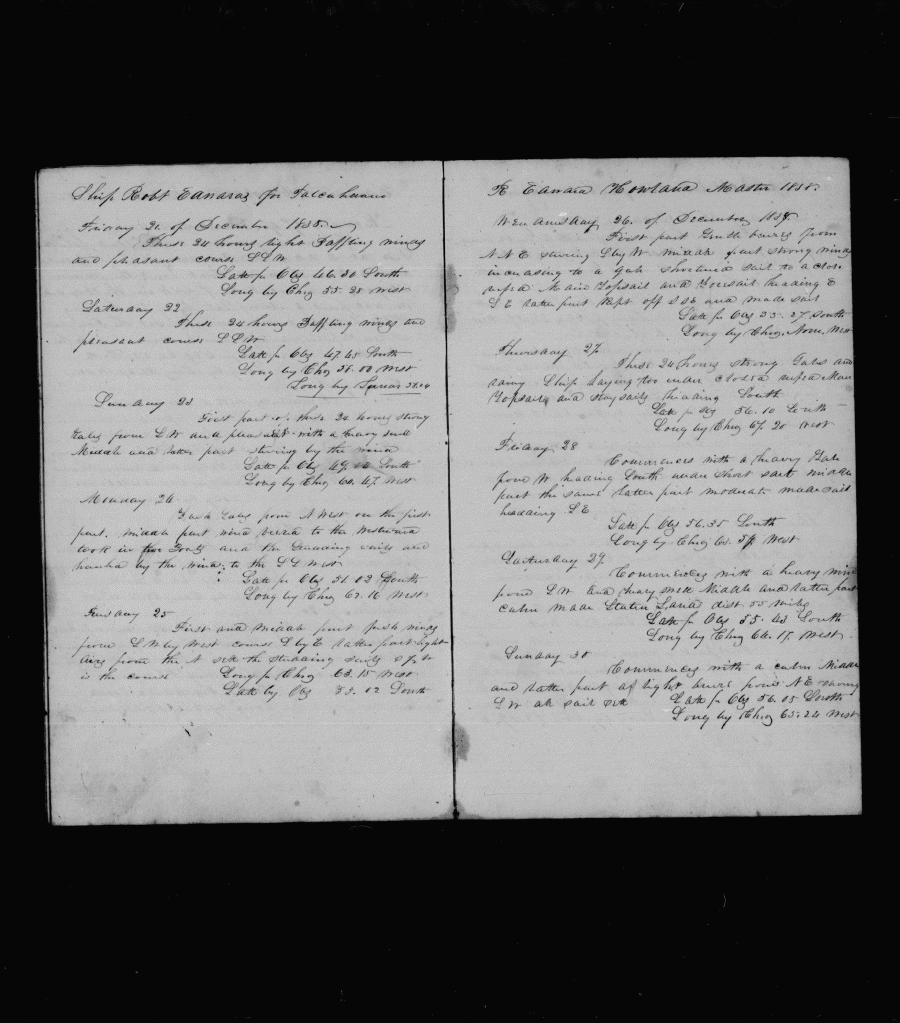 Ship Robt Edwards for Talcahuano
Friday 21. of December 1838.
These 24 hours light Baffling winds
and pleasant course SSW
Latt p Obs 46.30 South
Long by Chro 55.28 West
Saturday 22
These 24 hours Baffling winds and
pleasant course SSW
Latt p Obs 47.45 South
Long by Chro 58.00 West
Long by Lunar
Sunday 23
First part of these 24 hours strong
Gales from SW and pleasant with a heavy swell
Middle and latter part stering by the wind
Latt p Obs 49. South
Long by Chro 60.47 West
Monday 24
Fresh Gales from N West on the first
part. middle part wind veerd to the Westward
took in and the Studding sails and
hauld by the wind, to the West
Latt p Obs 51.03 South
Long by Chro 62.16 West
Tuesday 25
First and middle part fresh winds
from SW by West course S by E latter part light
airs from the N set the studding sails S by W
is the course Long p Chro 63.15 West
Latt by Obs 53.02 South
R Edward Howland Master 1838.
Wednesday 26. of December 1838
First part Gentle breeses from
NNE stering S by W middle part strong winds
increasing to a Gale shortend sail to a close
reefd Main Topsail and Foresail heading E
SE latter part Kept off SSE and made sail
Latt p Obs 55.27 South
Long by Chro. None, West
Thursday 27
These 24 hours strong Gales and
rainy Ship laying too under closed reefd Main
Topsails and staysails heading South
Latt p Obs 56.10 South
Long by Chro 67.20 West
Friday 28
Commences with a heavy Gale
from W heading South under Short sail middle
part the same latter part moderate made sail
heading SE
Latt p Obs 56.35 South
Long by Chro 65.37 West
Saturday 29
Commences with a heavy wind
from SW and heavy sea Middle and latter part
calm made Staten Land dist 55 miles
Latt p Obs 55.43 South
Long by Chro 64.17 West
Sunday 30
Commences with a calm Middle
and latter part of light breese from NE
SW all sail set Latt p Obs 56.05 South
Long by Chro 65.24 West